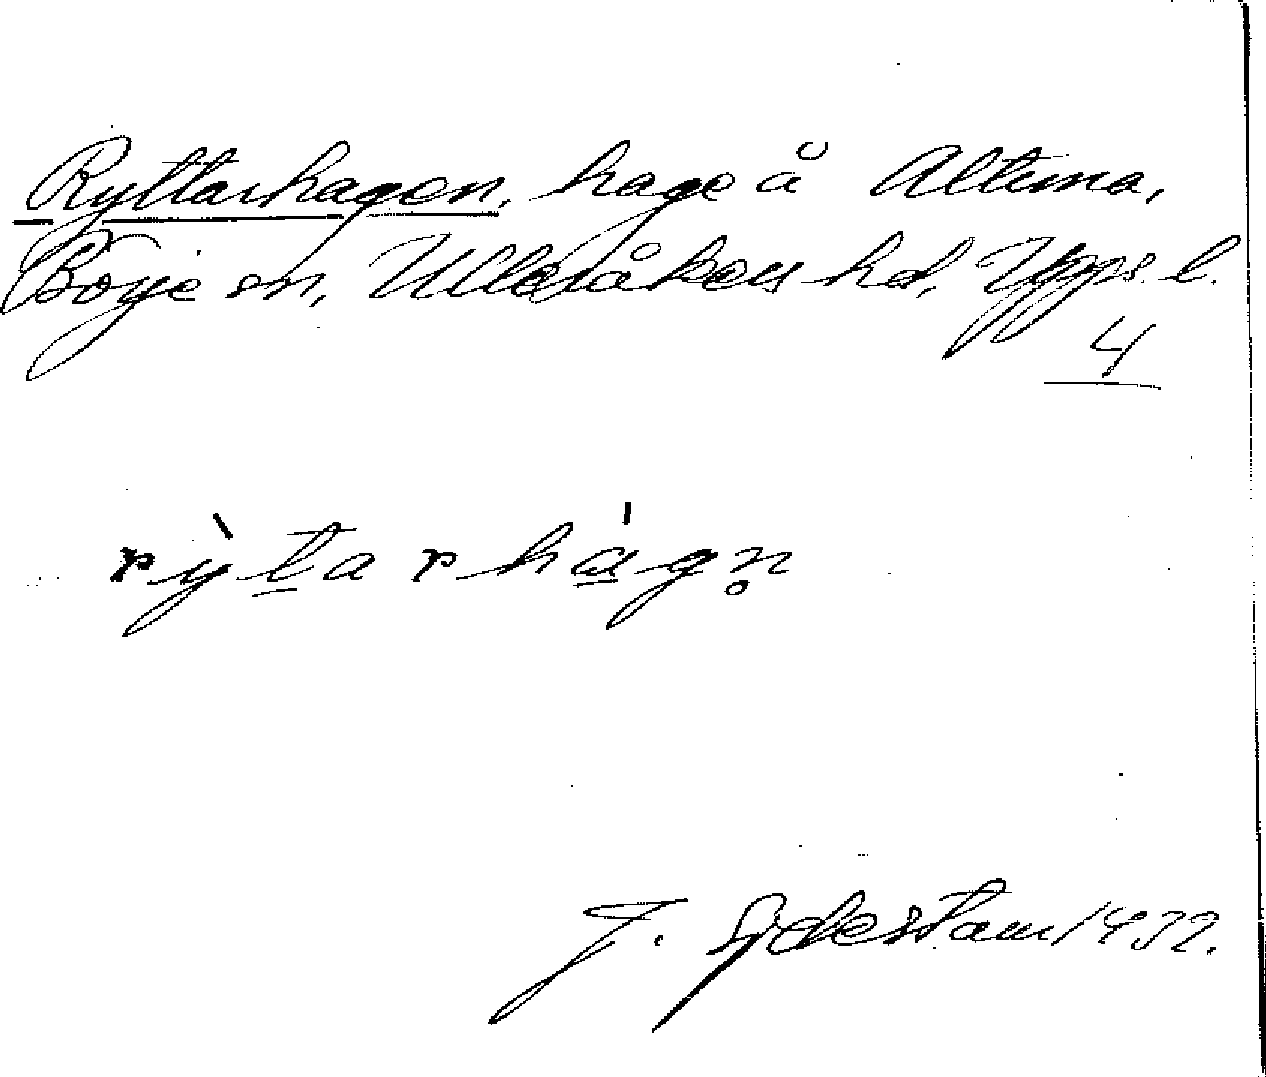 Ryttarhagen, hage å Altuna,
Börje sn, Ulleråkers hd, Upps. l.
4
rỳtarhágn̥
J. Sydestam 1932.